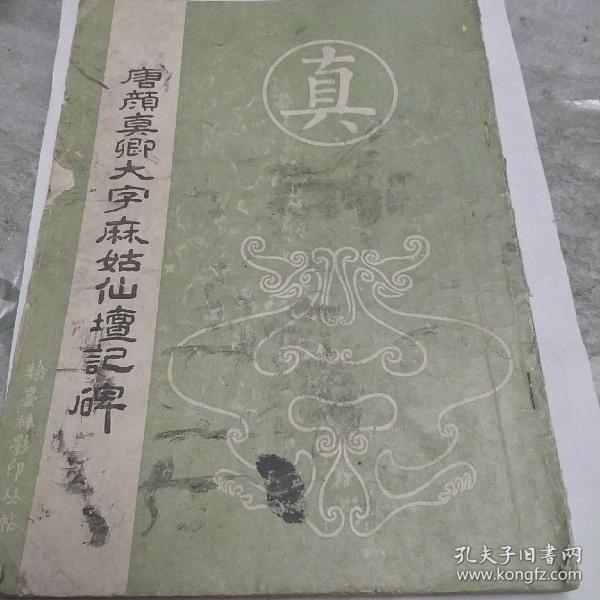 真
唐顏真卿大字麻姑仙壇記碑
翰墨林影印丛帖
孔夫子旧书网
www.kongfz.com